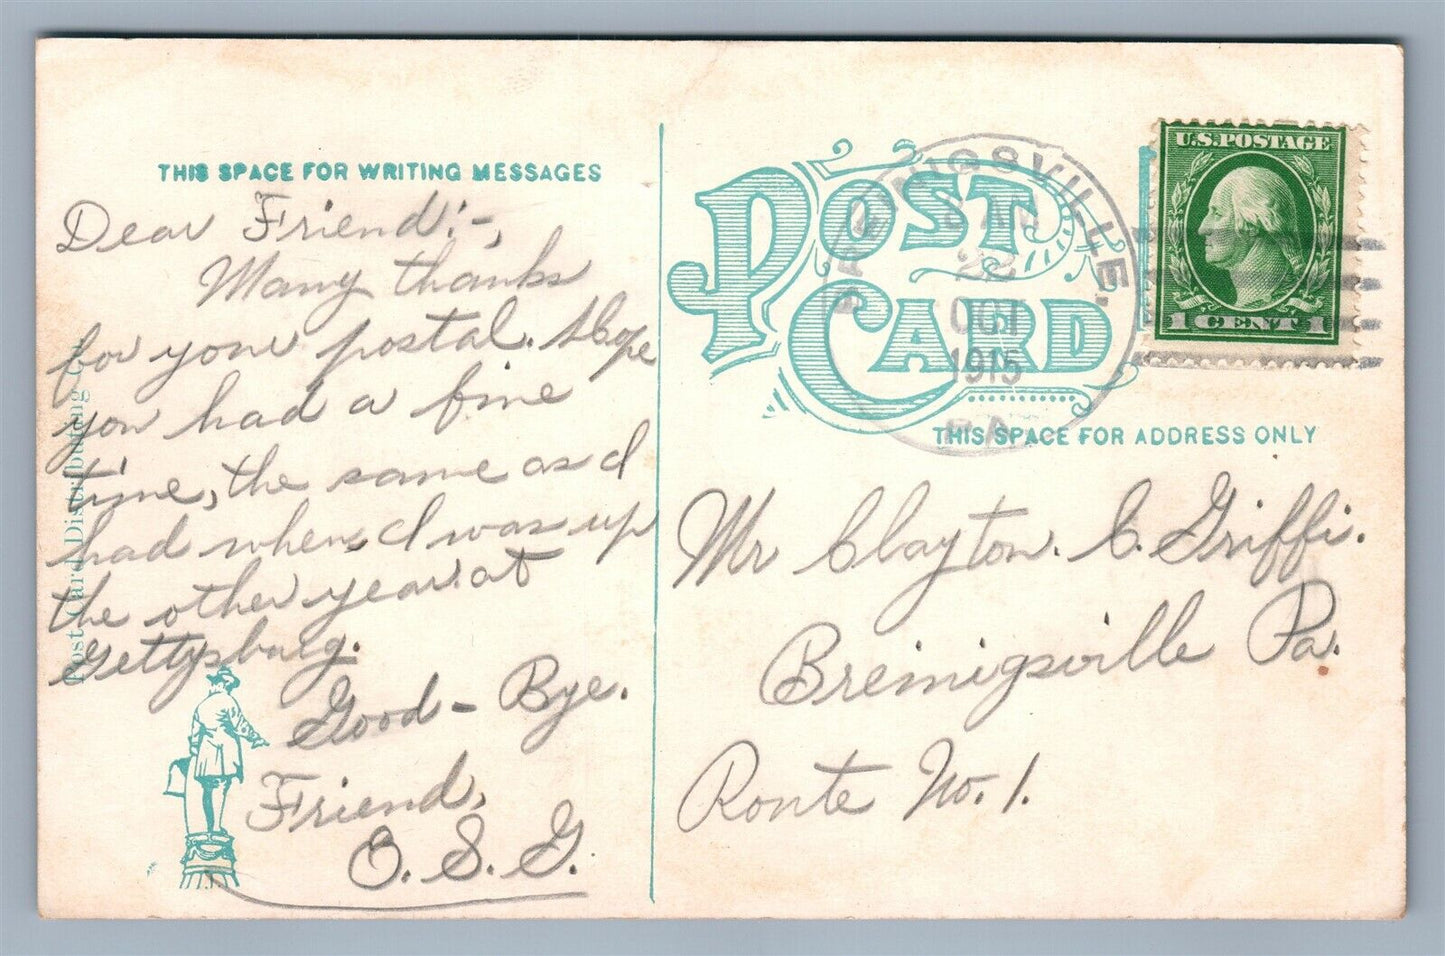 THIS SPACE FOR WRITING MESSAGES
Dear Friend:-,
Many thanks
for your postal. Hope
you had a fine
time, the same as I
had when I was up
the other year at
Gettysburg.
Good-Bye.
Friend,
O. S. G.
Post Card Distributing
POST CARD
BREINIGSVILLE.
8 AM
22
OCT
1915
PA.
U.S. POSTAGE
1 CENT 1
THIS SPACE FOR ADDRESS ONLY
Mr Clayton. C. Griffi.
Breinigsville Pa.
Route No. 1.